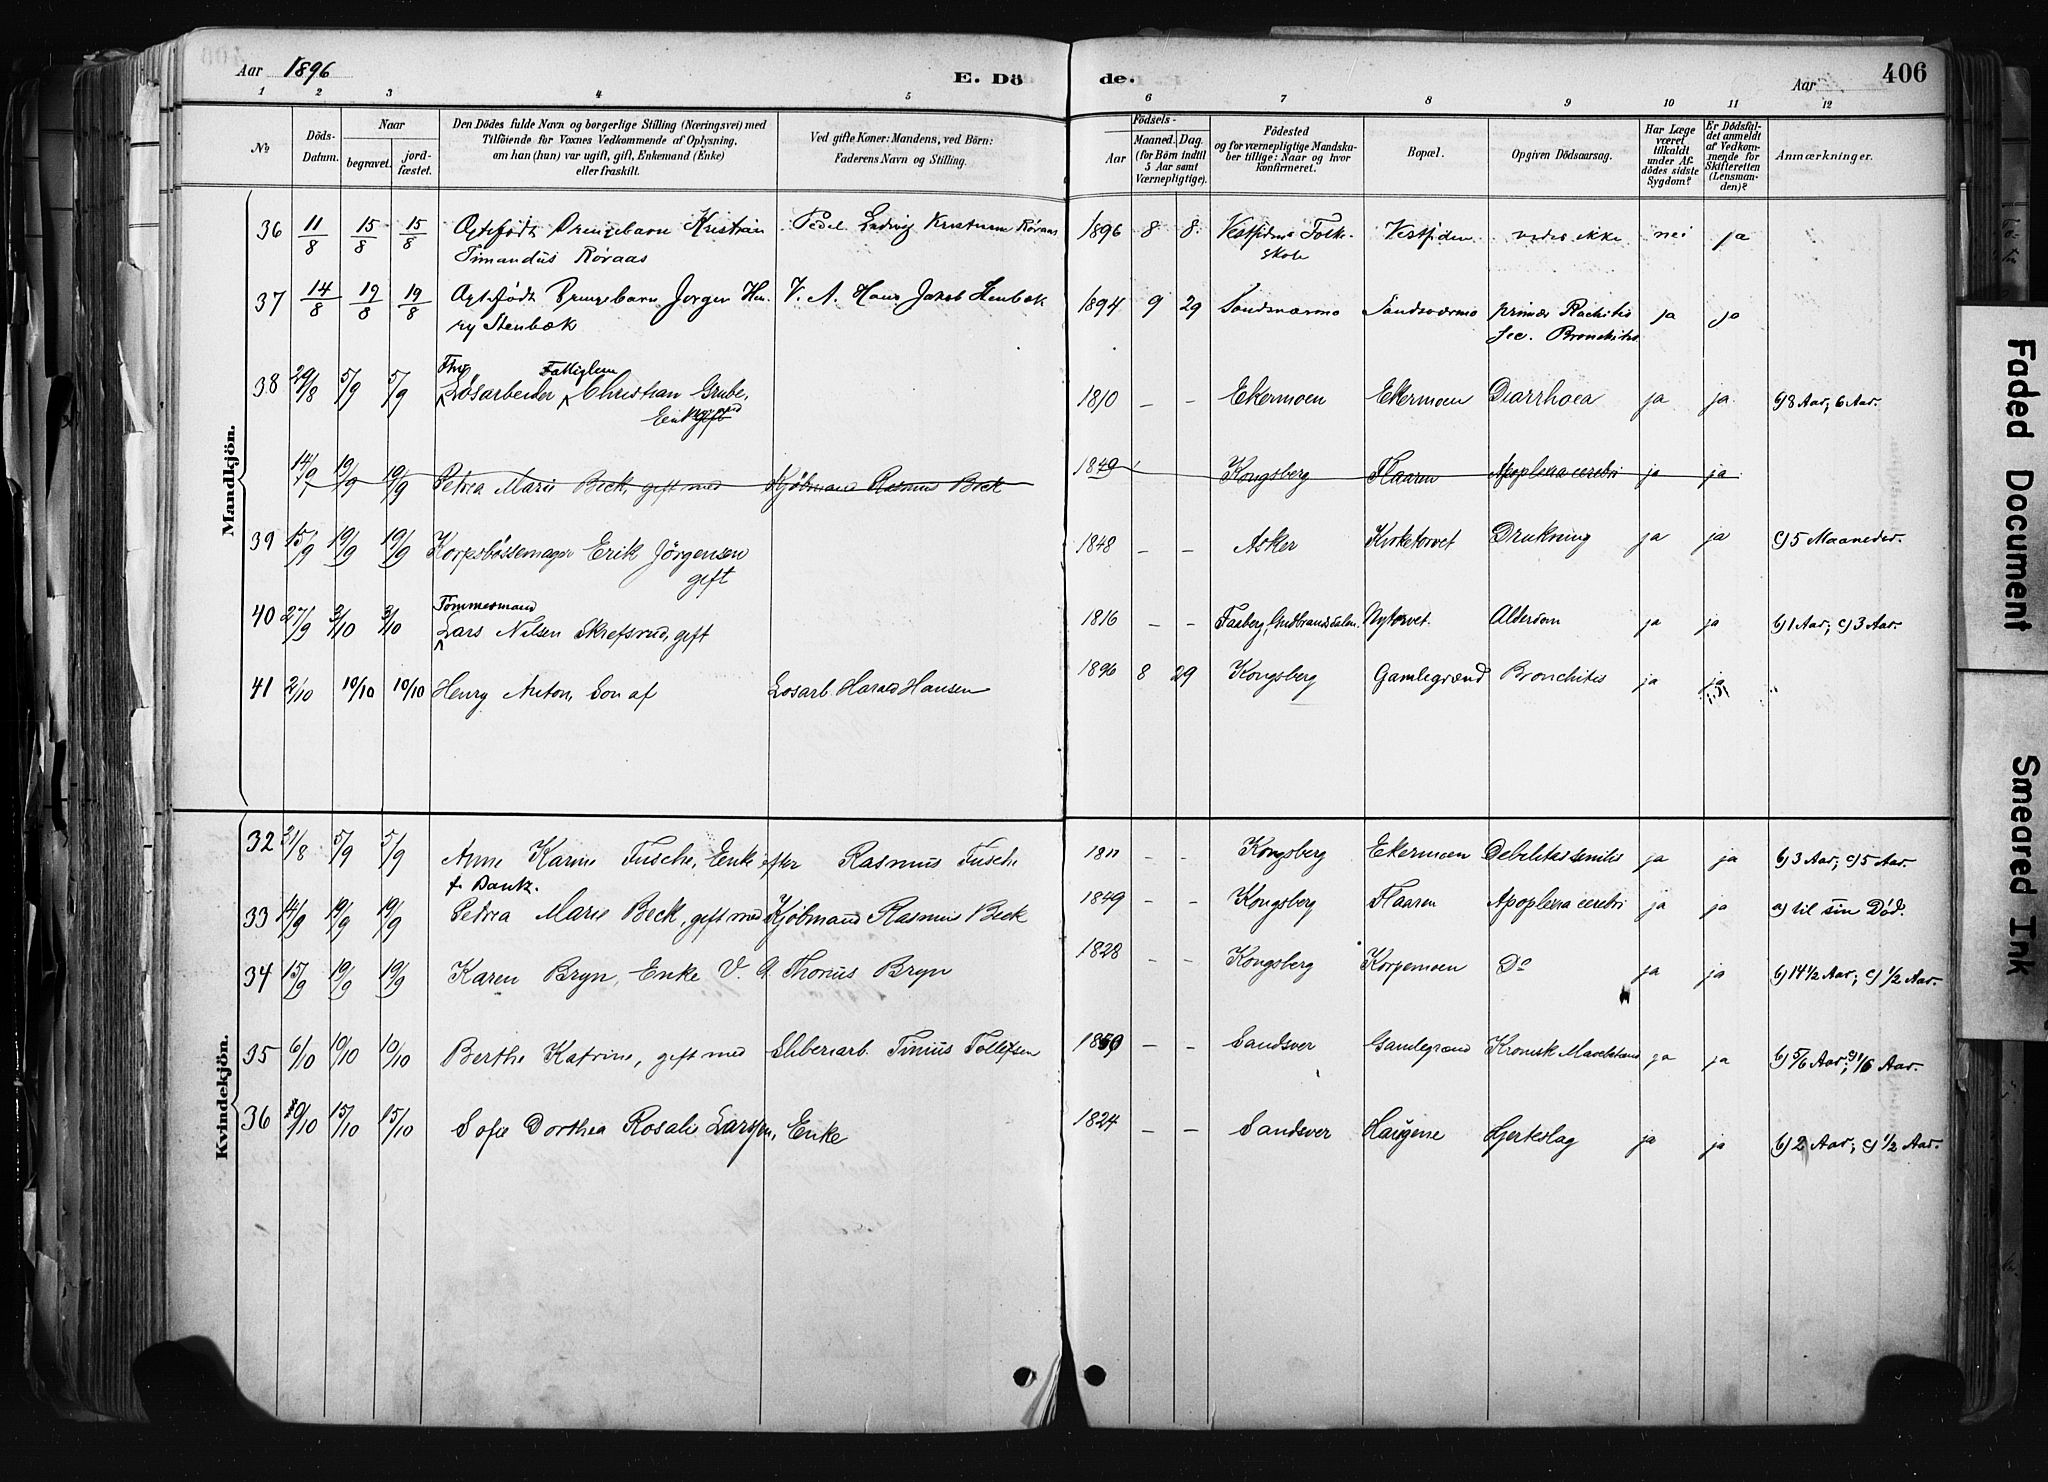 Aar 1896 E. Dö de. Aar 406
1 2 3 4 5 6 7 8 9 10 11 12
No
Döds-Datum.
Naar
begravet.
jord-fæstet.
Den Dödes fulde Navn og borgerlige Stilling (Næringsvei) med
Tilföiende for Voxnes Vedkommende af Oplysning,
om han (hun) var ugift, gift, Enkemand (Enke)
eller fraskilt.
Ved gifte Koner: Mandens, ved Börn:
Faderens Navn og Stilling.
Födsels-
Aar
Maaned. Dag.
(for Börn indtil
5 Aar samt
Værnepligtige).
Födested
og for værnepligtige Mandska-
ber tillige: Naar og hvor
konfirmeret.
Bopæl.
Opgiven Dödsaarsag.
Har Læge
været
tilkaldt
under Af-
dödes sidste
Sygdom?
Er Dödsfal-
det anmeldt
af Vedkom-
mende for
Skifteretten
(Lensman-
den)?
Anmærkninger.
Mandkjön.
36 11/8 15/8 15/8 Ægtefødt Drengebarn Kristian Ludvig Røraas 1896 8 8 Folke- nei ja
Timandus Røraas skole
37 14/8 19/8 19/8 Ægtefødt Drengebarn Jørgen Hen- V. A. Hans Jakob Stenbæk 1894 9 29 Sandsværmo Sandsværmo primær Rachitis ja ja
ry Stenbæk sec. Bronchitis
Fattiglem
38 29/8 5/9 5/9 Løsarbeider Christian Grube, 1810 – – Ekermoen Ekermoen Diarrhoea ja ja b) 8 Aar; 6 Aar.
14/9 19/9 19/9 Petrea Marie Beck, gift med Kjøbmand Rasmus Beck 1849 Kongsberg Flaaren Apoplexia cerebri ja ja
39 15/9 19/9 19/9 Korpsbössemager Erik Jörgensen 1848 – – Asker Kirketorvet Drukning ja ja c) 5 Maaneder.
gift
Tömmermand
40 27/9 3/10 3/10 Lars Nilsen Skrefsrud, gift 1816 – – Faaberg, Gudbrandsdalen. Nytorvet. Alderdom ja ja b) 1 Aar; c) 3 Aar.
41 2/10 10/10 10/10 Henry Anton, Søn af Løsarb. Harald Hansen 1896 8 29 Kongsberg Gamlegrænd Bronchitis ja ja
Kvindekjön.
32 31/8 5/9 5/9 Anne Karine Fusche, Enke efter Rasmus Fusche 1811 – – Kongsberg Ekermoen Debilitas senilis ja ja b) 3 Aar; c) 5 Aar.
f. Bantz.
33 14/9 19/9 19/9 Petrea Marie Beck, gift med Kjöbmand Rasmus Beck 1849 – – Kongsberg Flaaren Apoplexia cerebri ja ja a) til sin Död.
34 15/9 19/9 19/9 Karen Bryn, Enke V. A. Thorius Bryn 1828 – – Kongsberg Korpemoen Do ja ja b) 14 1/2 Aar; c) 1/2 Aar.
35 6/10 10/10 10/10 Berthe Katrine, gift med Sliberiarb. Tinius Tollefsen 1850 – – Sandsver Gamlegrænd Kronisk ja ja b) 5/6 Aar; c) 1/6 Aar.
36 9/10 15/10 15/10 Sofie Dorthea Rosalie Larsen, Enke 1824 – – Sandsver Haugene Hjerteslag ja ja b) 2 Aar; c) 1/2 Aar.
Faded Document
Smeared Ink